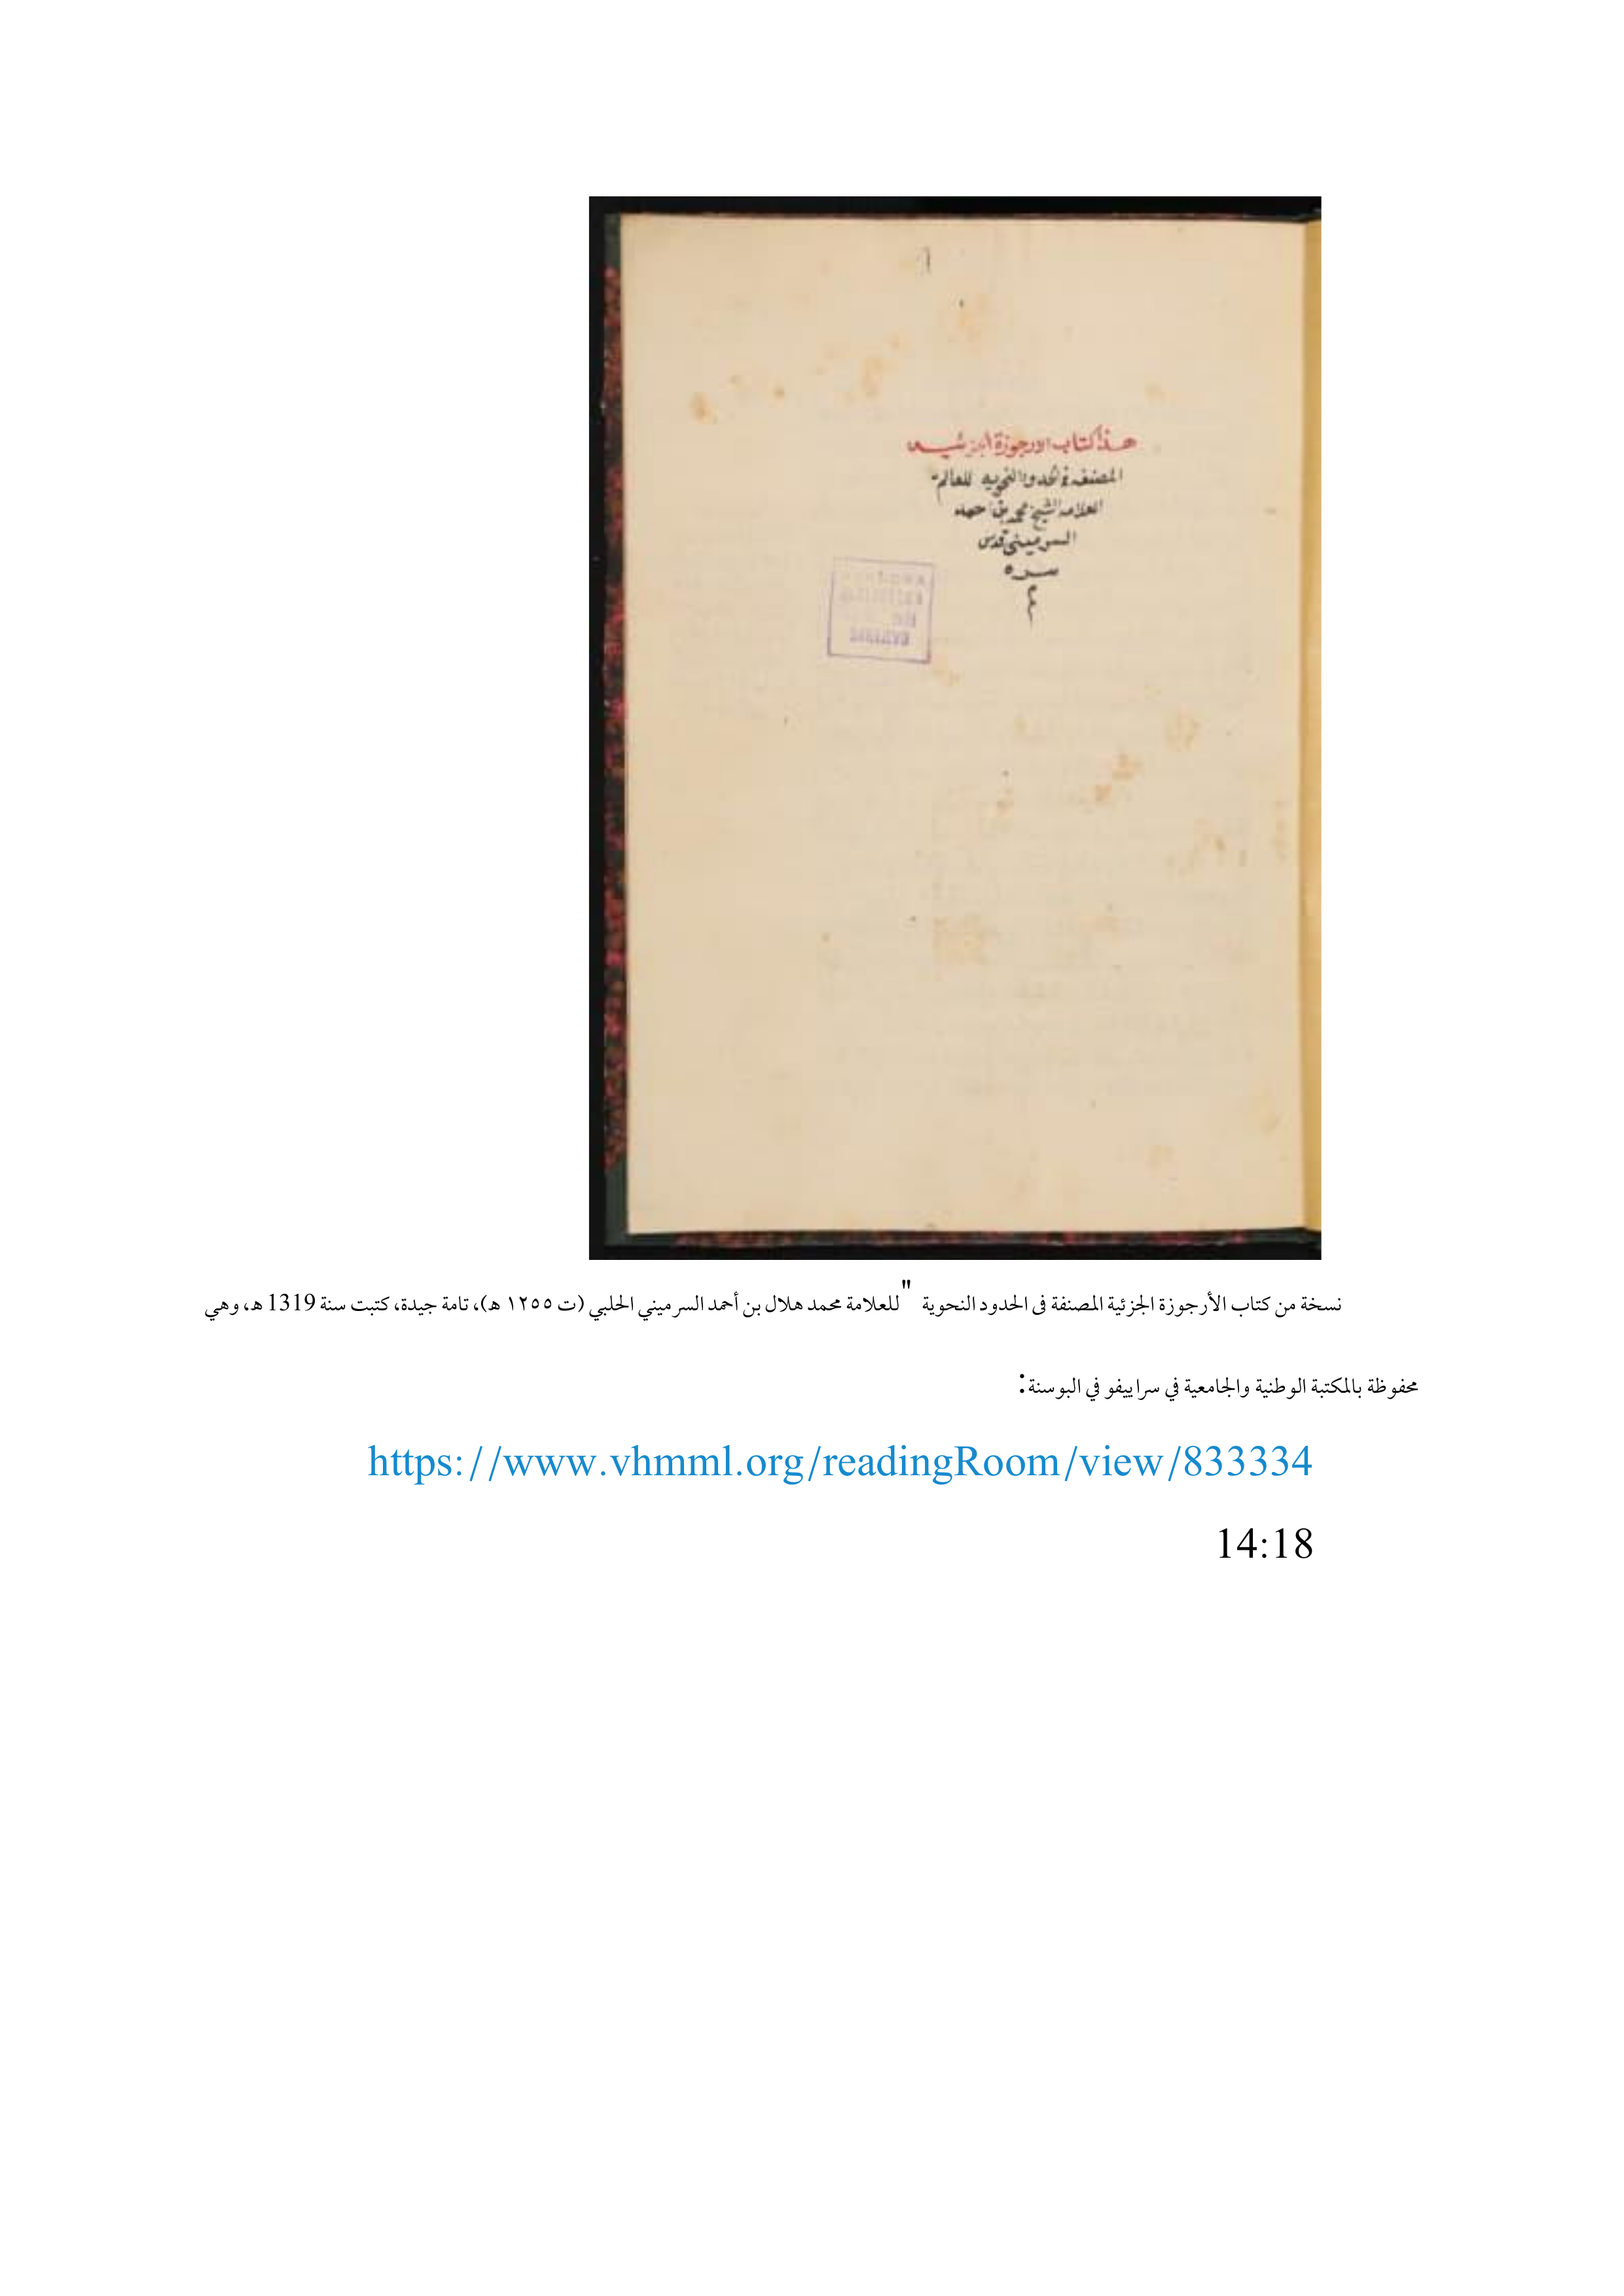 هذا كتاب الارجوزة الجزئيه
المصنفه في الحدود النحويه للعالم
العلامه الشيخ محمد بن احمد
السرميني قدس
سره
نسخة من كتاب الأرجوزة الجزئية المصنفة فى الحدود النحوية " للعلامة محمد هلال بن أحمد السرميني الحلبي (ت ١٢٥٥ هـ)، تامة جيدة، كتبت سنة 1319 هـ، وهي
محفوظة بالمكتبة الوطنية والجامعية في سراييفو في البوسنة:
https://www.vhmml.org/readingRoom/view/833334
14:18